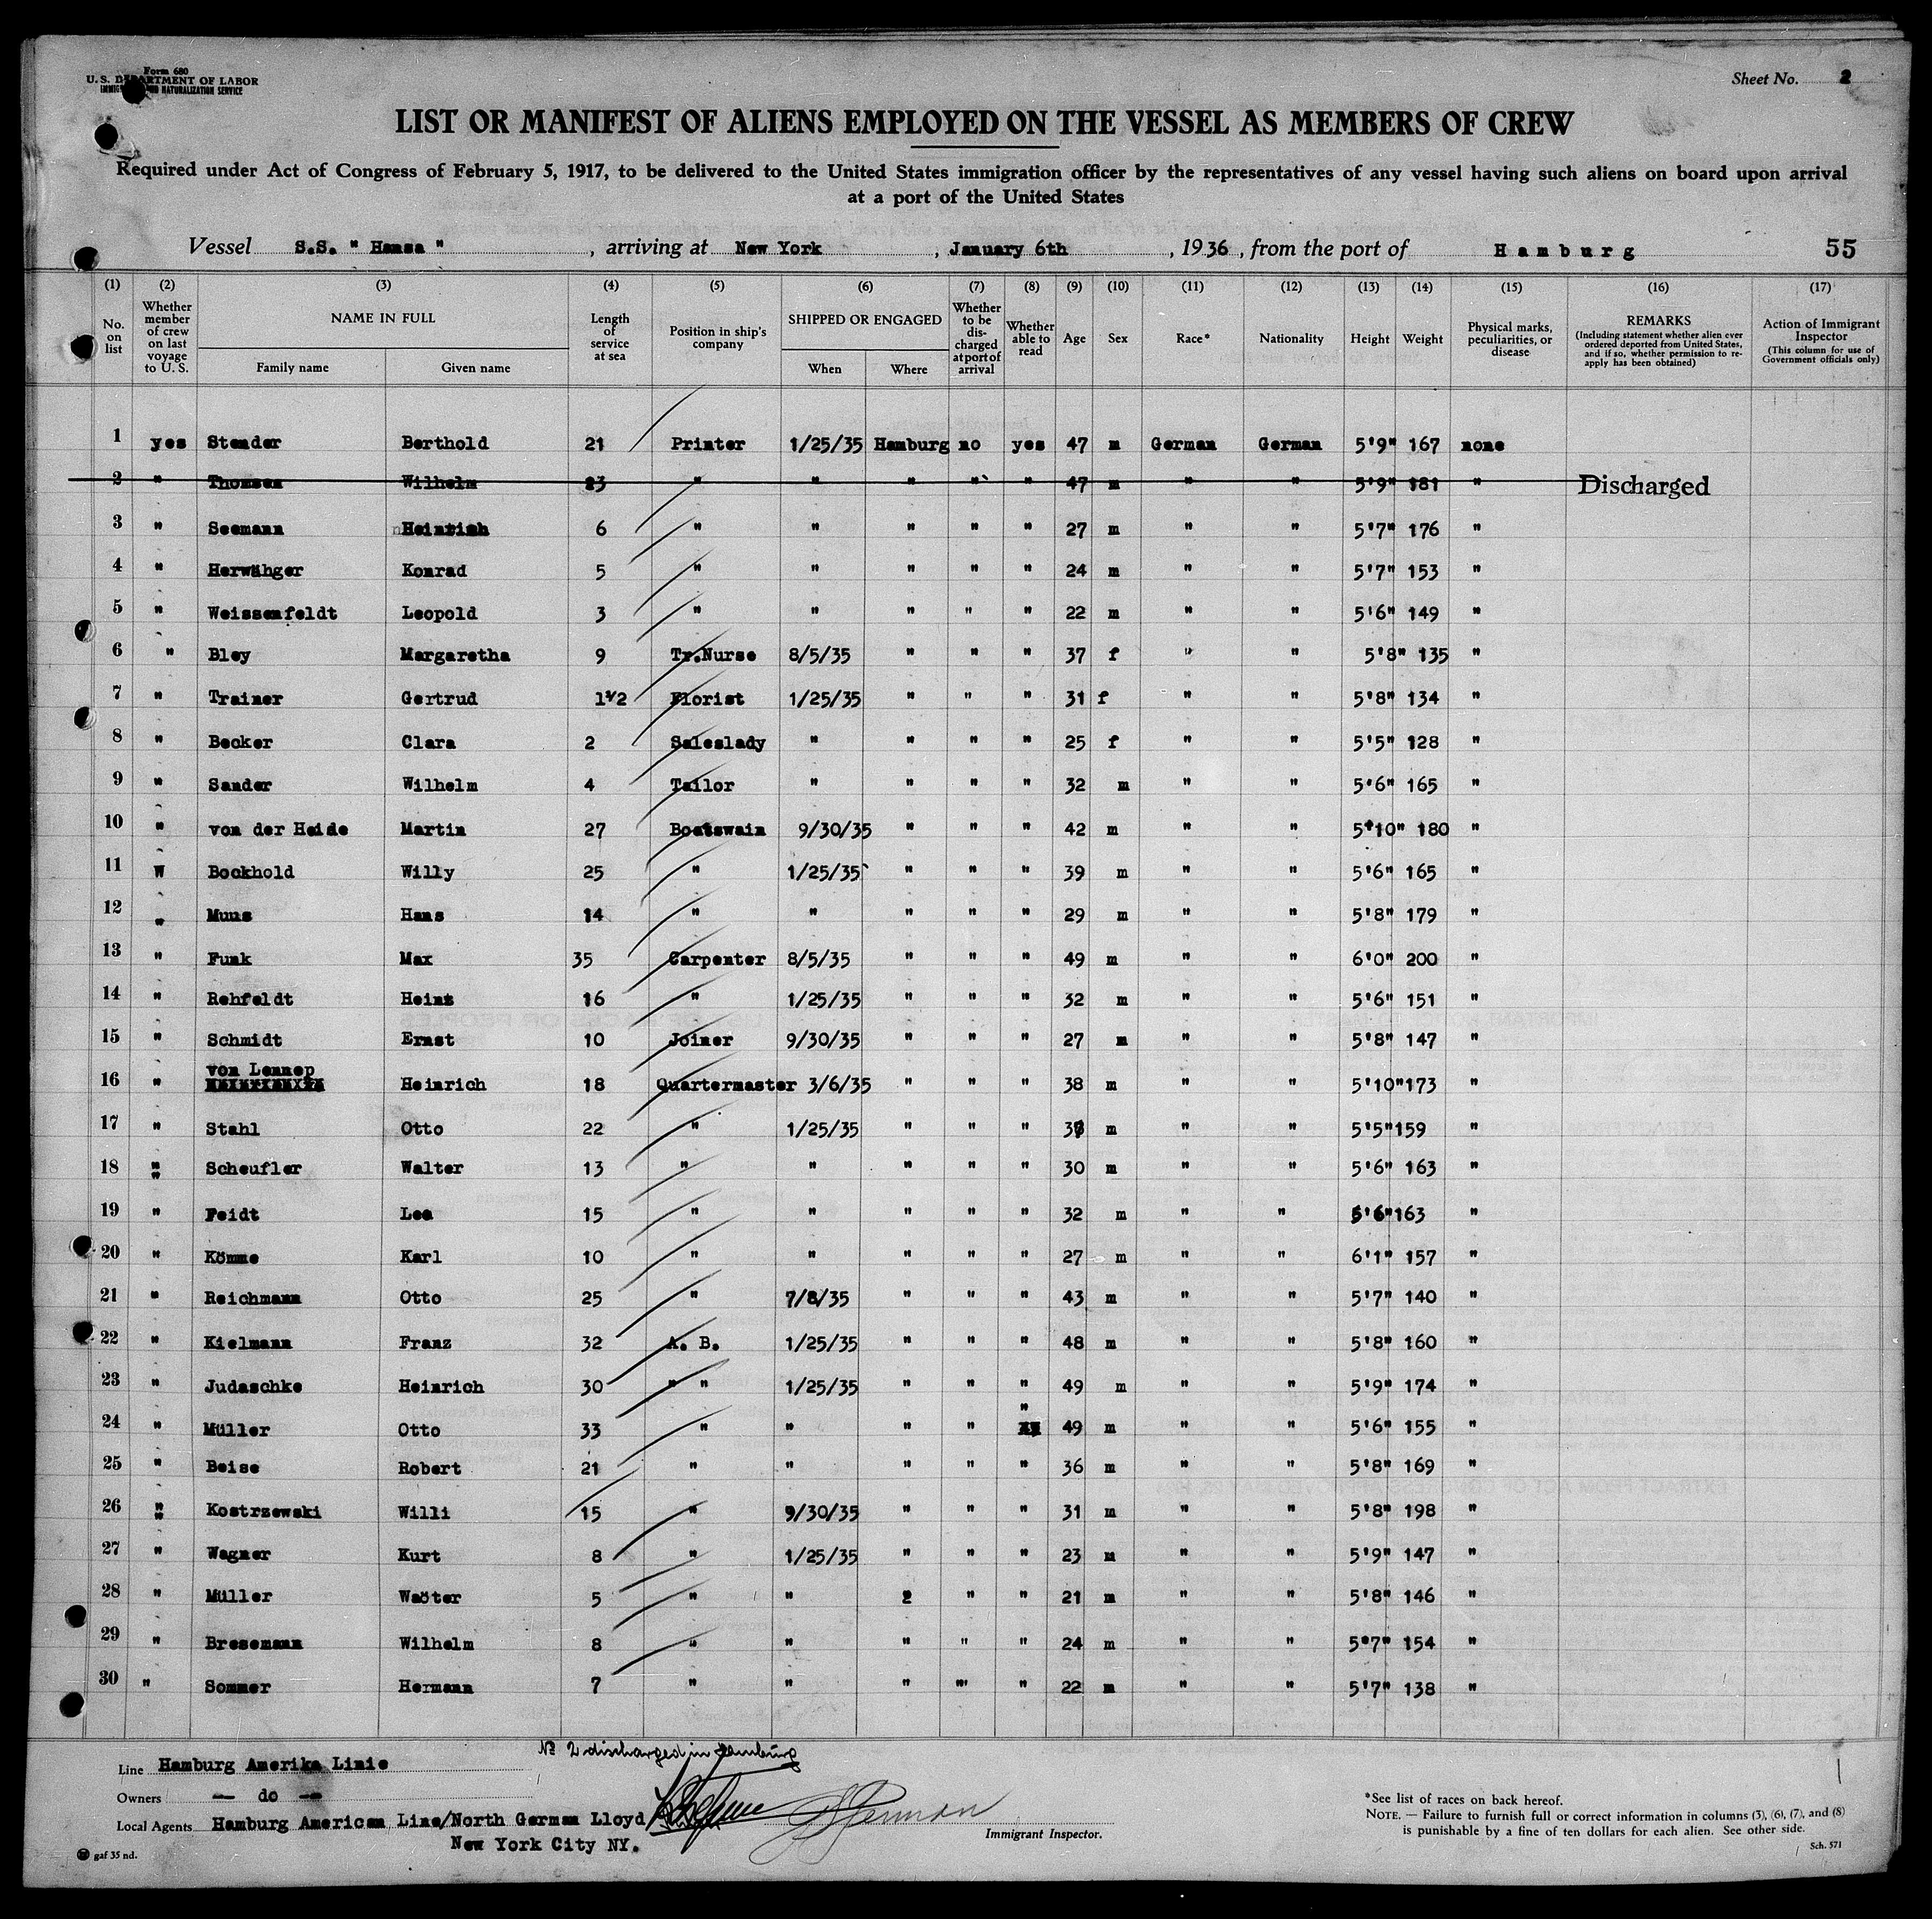 Form 680
U. S. DEPARTMENT OF LABOR
IMMIGRATION AND NATURALIZATION SERVICE
Sheet No. 2
LIST OR MANIFEST OF ALIENS EMPLOYED ON THE VESSEL AS MEMBERS OF CREW
Required under Act of Congress of February 5, 1917, to be delivered to the United States immigration officer by the representatives of any vessel having such aliens on board upon arrival
at a port of the United States
Vessel S.S. " Hansa " , arriving at New York , January 6th , 1936 , from the port of Hamburg 55
(1) (2) (3) (4) (5) (6) (7) (8) (9) (10) (11) (12) (13) (14) (15) (16) (17)
No. on list Whether member of crew on last voyage to U. S. NAME IN FULL Family name Given name Length of service at sea Position in ship's company SHIPPED OR ENGAGED When Where Whether to be discharged at port of arrival Whether able to read Age Sex Race* Nationality Height Weight Physical marks, peculiarities, or disease REMARKS (Including statement whether alien ever ordered deported from United States, and if so, whether permission to reapply has been obtained) Action of Immigrant Inspector (This column for use of Government officials only)
1 yes Stender Berthold 21 Printer 1/25/35 Hamburg no yes 47 m German German 5'9" 167 none
2 " Thomsen Wilhelm 23 " " " " " 47 m " " 5'9" 181 " Discharged
3 " Seemann Heinrich 6 " " " " " 27 m " " 5'7" 176 "
4 " Herwähger Konrad 5 " " " " " 24 m " " 5'7" 153 "
5 " Weissenfeldt Leopold 3 " " " " " 22 m " " 5'6" 149 "
6 " Bley Margaretha 9 Tr.Nurse 8/5/35 " " " 37 f " " 5'8" 135 "
7 " Trainer Gertrud 1 1/2 Florist 1/25/35 " " " 31 f " " 5'8" 134 "
8 " Becker Clara 2 Saleslady " " " " 25 f " " 5'5" 128 "
9 " Sander Wilhelm 4 Tailor " " " " 32 m " " 5'6" 165 "
10 " von der Heide Martin 27 Boatswain 9/30/35 " " " 42 m " " 5'10" 180 "
11 W Bockhold Willy 25 " 1/25/35 " " " 39 m " " 5'6" 165 "
12 " Muus Hans 14 " " " " " 29 m " " 5'8" 179 "
13 " Funk Max 35 Carpenter 8/5/35 " " " 49 m " " 6'0" 200 "
14 " Rehfeldt Heinz 16 " 1/25/35 " " " 32 m " " 5'6" 151 "
15 " Schmidt Ernst 10 Joiner 9/30/35 " " " 27 m " " 5'8" 147 "
16 " von Lennep Heinrich 18 Quartermaster 3/6/35 " " " 38 m " " 5'10" 173 "
17 " Stahl Otto 22 " 1/25/35 " " " m " " 5'5" 159 "
18 " Scheufler Walter 13 " " " " " 30 m " " 5'6" 163 "
19 " Feidt Leo 15 " " " " " 32 m " " 5'6" 163 "
20 " Kömme Karl 10 " " " " " 27 m " " 6'1" 157 "
21 " Reichmann Otto 25 " 7/8/35 " " " 43 m " " 5'7" 140 "
22 " Kielmann Franz 32 A. B. 1/25/35 " " " 48 m " " 5'8" 160 "
23 " Judaschke Heinrich 30 " " 1/25/35 " " " 49 m " " 5'9" 174 "
24 " Müller Otto 33 " " " " " 49 m " " 5'6" 155 "
25 " Beise Robert 21 " " " " " 36 m " " 5'8" 169 "
26 " Kostrzewski Willi 15 " 9/30/35 " " " 31 m " " 5'8" 198 "
27 " Wagner Kurt 8 " 1/25/35 " " " 23 m " " 5'9" 147 "
28 " Müller Waöter 5 " " 2 " " 21 m " " 5'8" 146 "
29 " Bresemann Wilhelm 8 " " " " " 24 m " " 5"7" 154 "
30 " Sommer Hermann 7 " " " "' " 22 m " " 5'7" 138 "
No 2 discharged in Hamburg
Line Hamburg Amerika Linie
Owners — do —
Local Agents Hamburg American Line/North German Lloyd
New York City NY.
Immigrant Inspector.
*See list of races on back hereof.
NOTE. — Failure to furnish full or correct information in columns (3), (6), (7), and (8)
is punishable by a fine of ten dollars for each alien. See other side.
gaf 35 nd.
Sch. 571